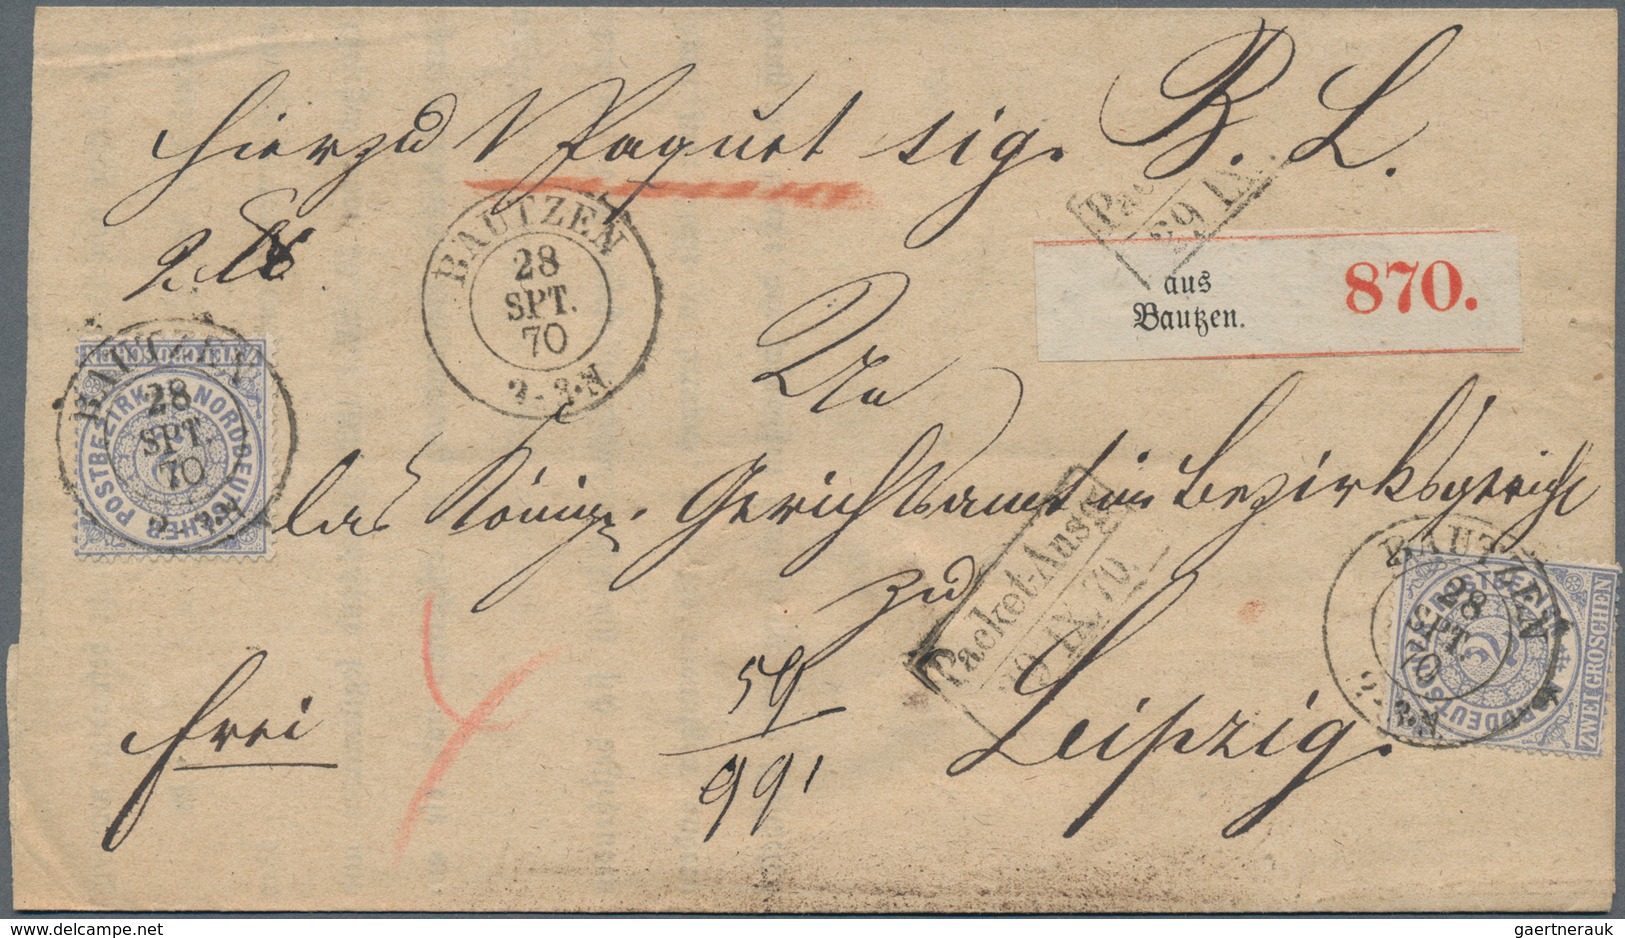 Hierzu 1 Paquet sig. B. L.
BAUTZEN
28
SPT.
70
2-3·N
Pac
29 IX
aus
Bautzen.
870.
BAUTZEN
28
SPT.
70
NORDDEUTSCHER POSTBEZIRK
An
das Königl. Gerichtsamt im Bezirksgericht
zu
Leipzig.
Packet-Ausg.
29 IX. 70.
BAUTZEN
28
SPT.
70
2-3·N
NORDDEUTSCHER POSTBEZIRK
2
ZWEI GROSCHEN
frei
4
59
991
gaertnerauk